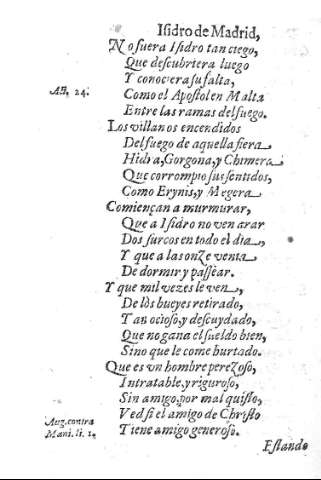 Isidro de Madrid,
No fuera Isidro tan ciego,
Que descubriera luego
Y conociera su falta,
Act. 24.
Como el Apostol en Malta
Entre las ramas del fuego.
Los villanos encendidos
Del fuego de aquella fiera
Hidra, Gorgona, y Chimera
Que corrompio sus sentidos,
Como Erynis, y Megera
Comiençan a murmurar,
Que a Isidro no ven arar
Dos surcos en todo el dia,
Y que a las onze venta
De dormir y passear.
Y que mil vezes le ven,
De los bueyes retirado,
Tan ocioso, y descuydado,
Que no gana el sueldo bien,
Sino que le come hurtado.
Que es vn hombre perezoso,
Intratable, y riguroso,
Sin amigo, por mal quisto,
Ved si el amigo de Christo
Aug. contra
Mani. li. 1.
Tiene amigo generoso.
Estando